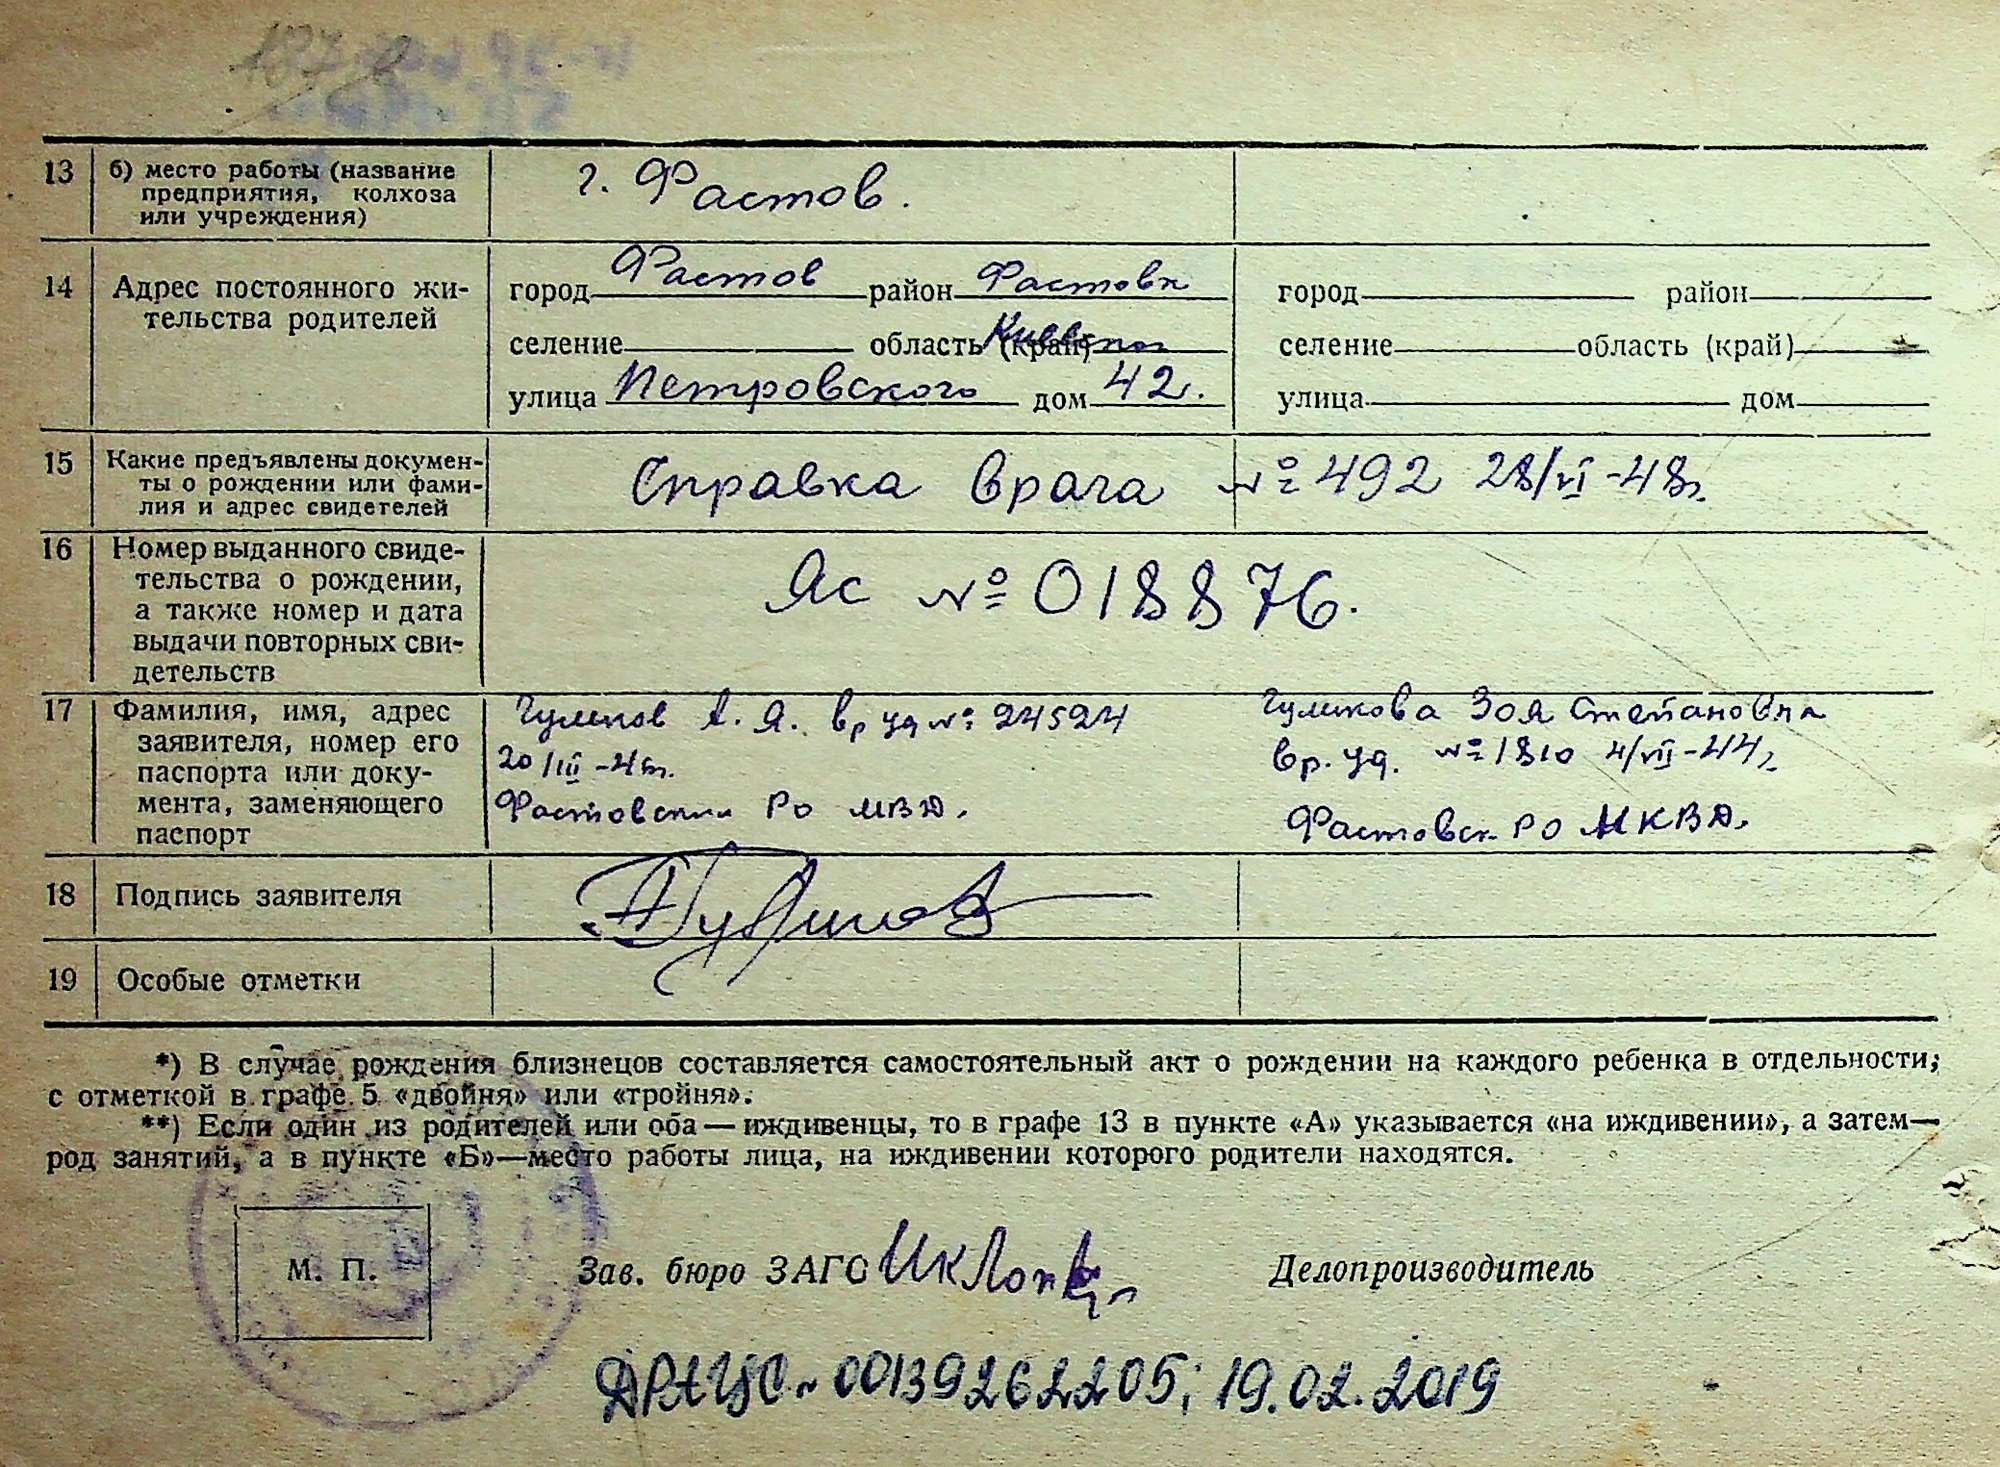 13 б) место работы (название предприятия, колхоза или учреждения) г. Фастов.
14 Адрес постоянного жительства родителей
город Фастов район Фастовк город район
селение область (край) Киевской селение область (край)
улица Петровского дом 42. улица дом
15 Какие предъявлены документы о рождении или фамилия и адрес свидетелей
Справка врача № 492 28/VI-48г.
16 Номер выданного свидетельства о рождении, а также номер и дата выдачи повторных свидетельств
Яс № 018876.
17 Фамилия, имя, адрес заявителя, номер его паспорта или документа, заменяющего паспорт
А. Я. вр уд № 24524
20/III
Фастовский РО МВД.
Зоя Степановна
вр. уд. № 1810 4/VII-44г.
Фастовск. РО НКВД.
18 Подпись заявителя
19 Особые отметки
*) В случае рождения близнецов составляется самостоятельный акт о рождении на каждого ребенка в отдельности,
с отметкой в графе 5 «двойня» или «тройня».
**) Если один из родителей или оба — иждивенцы, то в графе 13 в пункте «А» указывается «на иждивении», а затем—
род занятий, а в пункте «Б»—место работы лица, на иждивении которого родители находятся.
М. П. Зав. бюро ЗАГС Делопроизводитель
ДРАЦС 00139262205; 19.02.2019